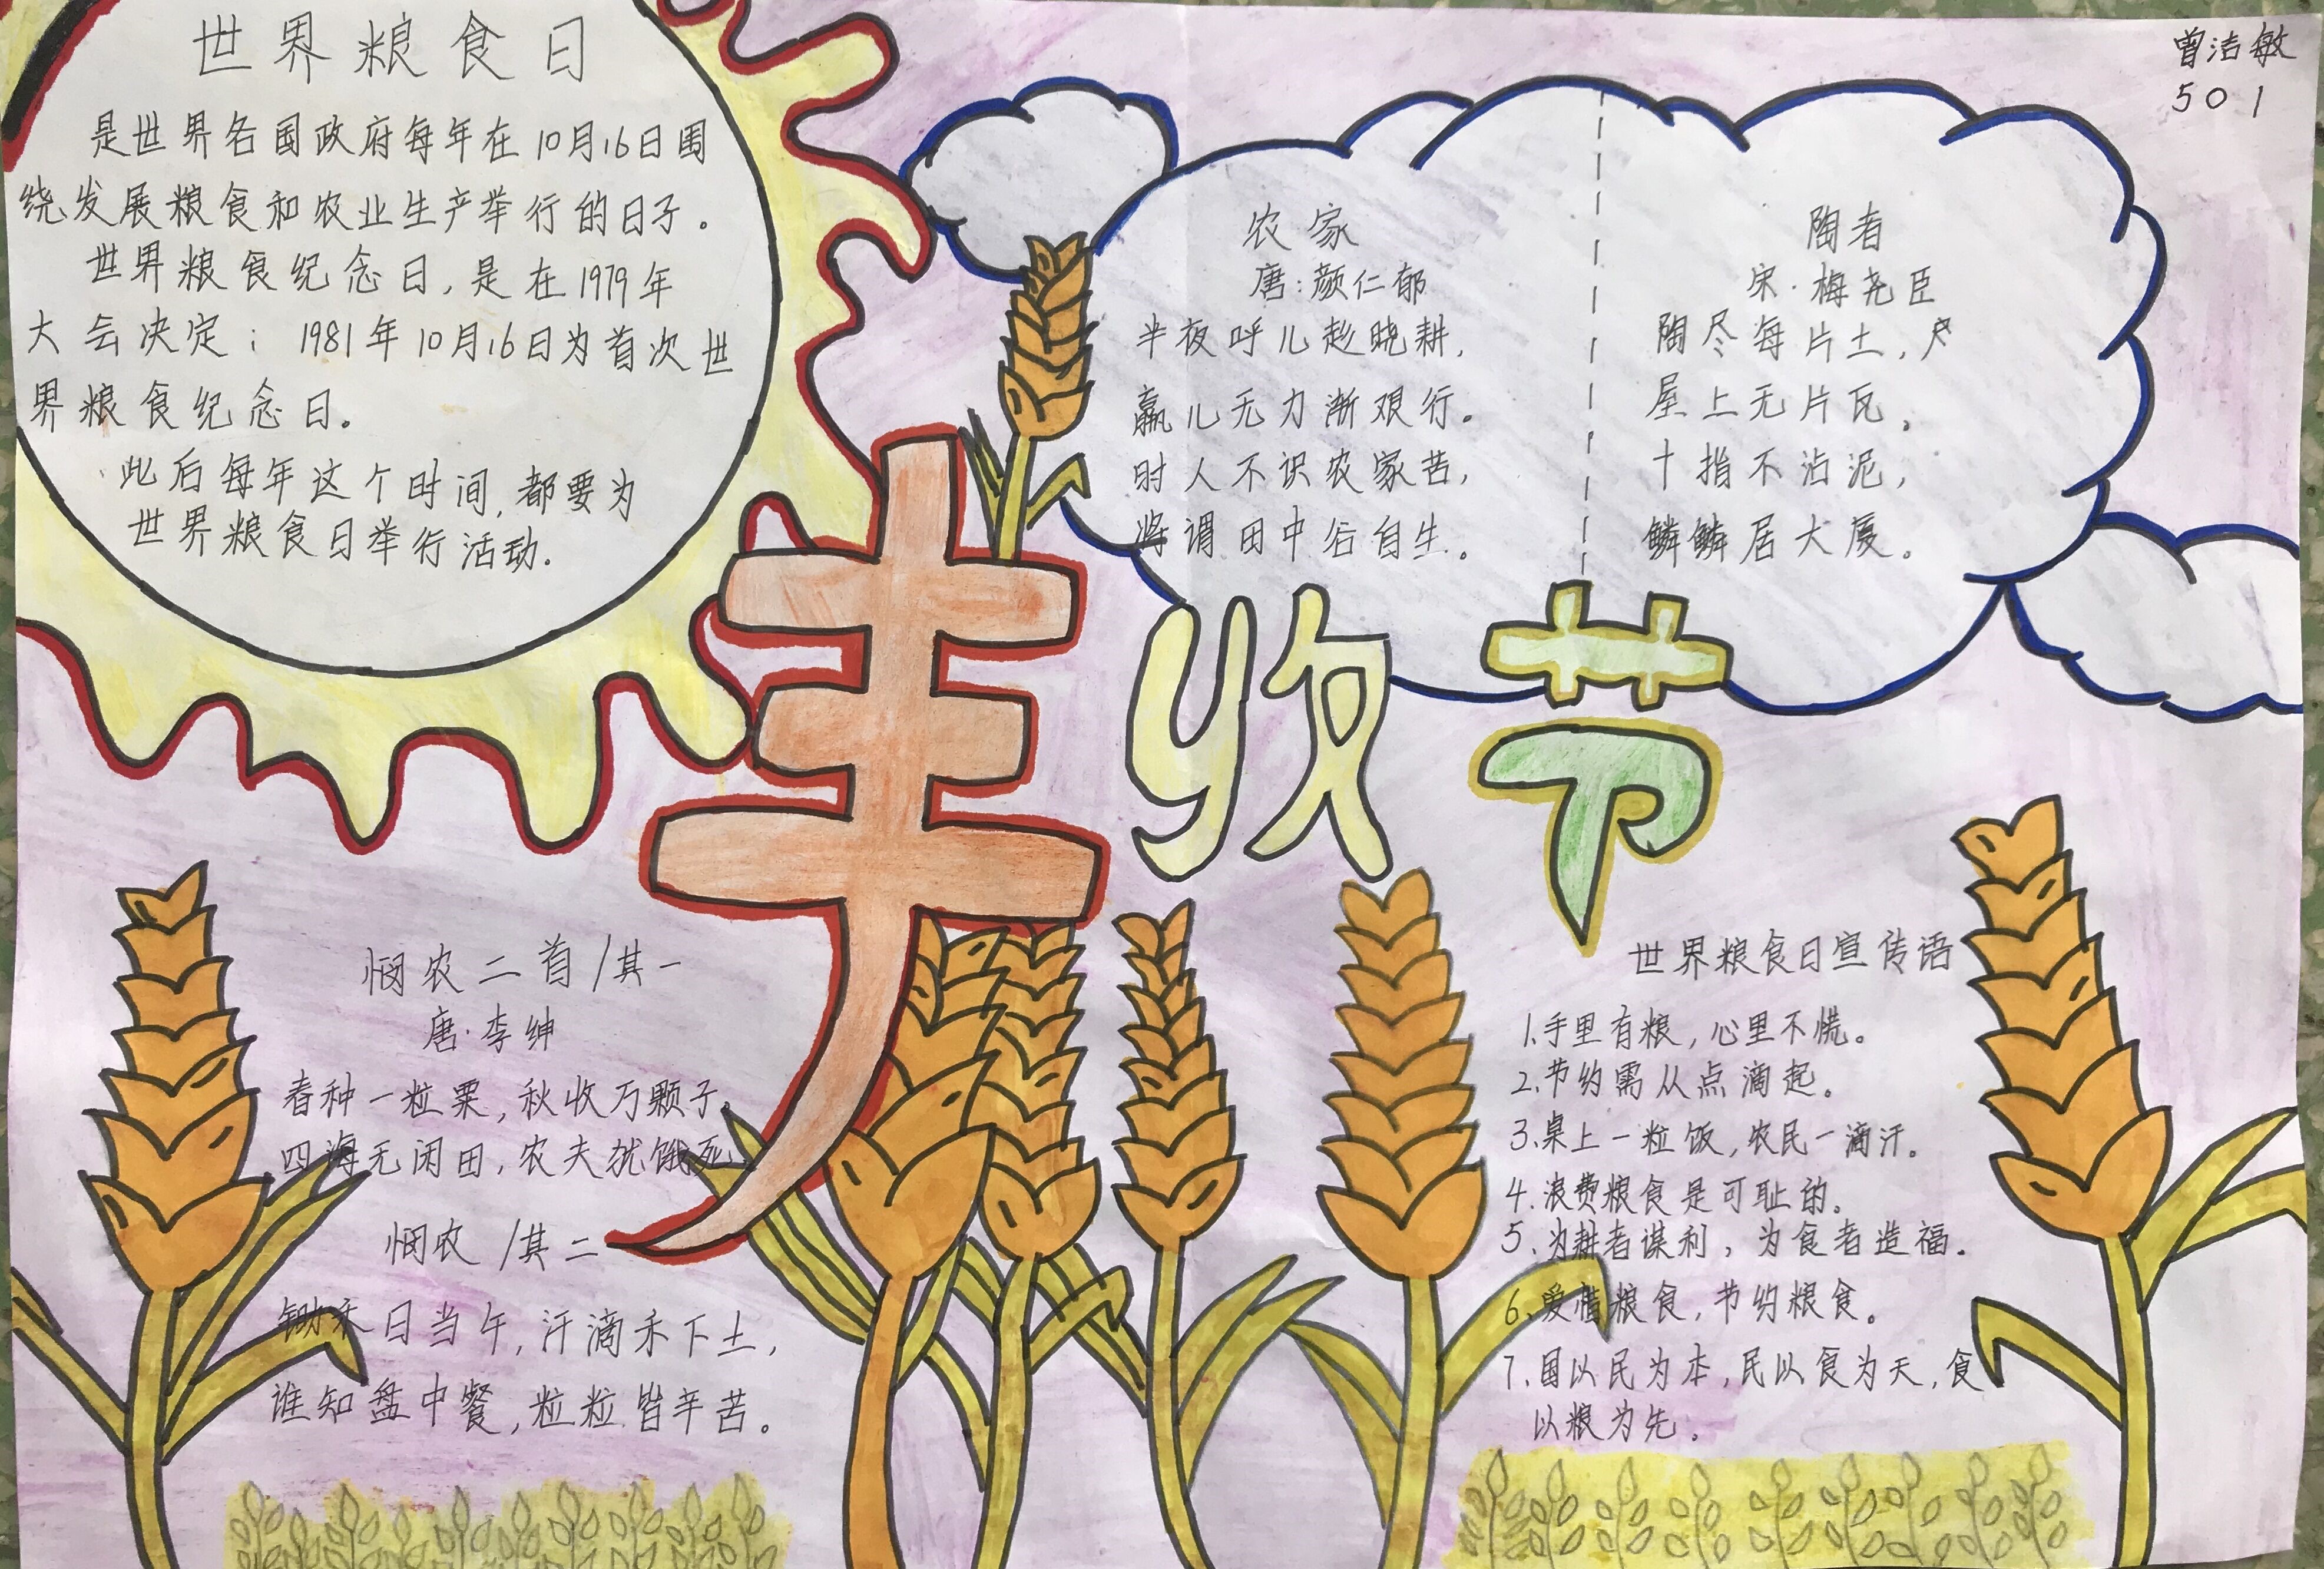 世界粮食日
是世界各国政府每年在10月16日围
绕发展粮食和农业生产举行的日子。
世界粮食纪念日,是在1979年
大会决定：1981年10月16日为首次世
界粮食纪念日。
此后每年这个时间,都要为
世界粮食日举行活动.
曾洁敏
501
农家
唐:颜仁郁
半夜呼儿趁晓耕,
羸儿无力渐艰行。
时人不识农家苦,
将谓田中谷自生。
陶者
宋·梅尧臣
陶尽每片土,
屋上无片瓦。
十指不沾泥,
鳞鳞居大厦。
丰收节
悯农二首/其一
唐·李绅
春种一粒粟,秋收万颗子。
四海无闲田,农夫犹饿死。
悯农/其二
锄禾日当午,汗滴禾下土,
谁知盘中餐,粒粒皆辛苦。
世界粮食日宣传语
1.手里有粮,心里不慌。
2.节约需从点滴起。
3.桌上一粒饭,农民一滴汗。
4.浪费粮食是可耻的。
5.为耕者谋利,为食者造福.
6.爱惜粮食,节约粮食。
7.国以民为本,民以食为天,食
以粮为先.